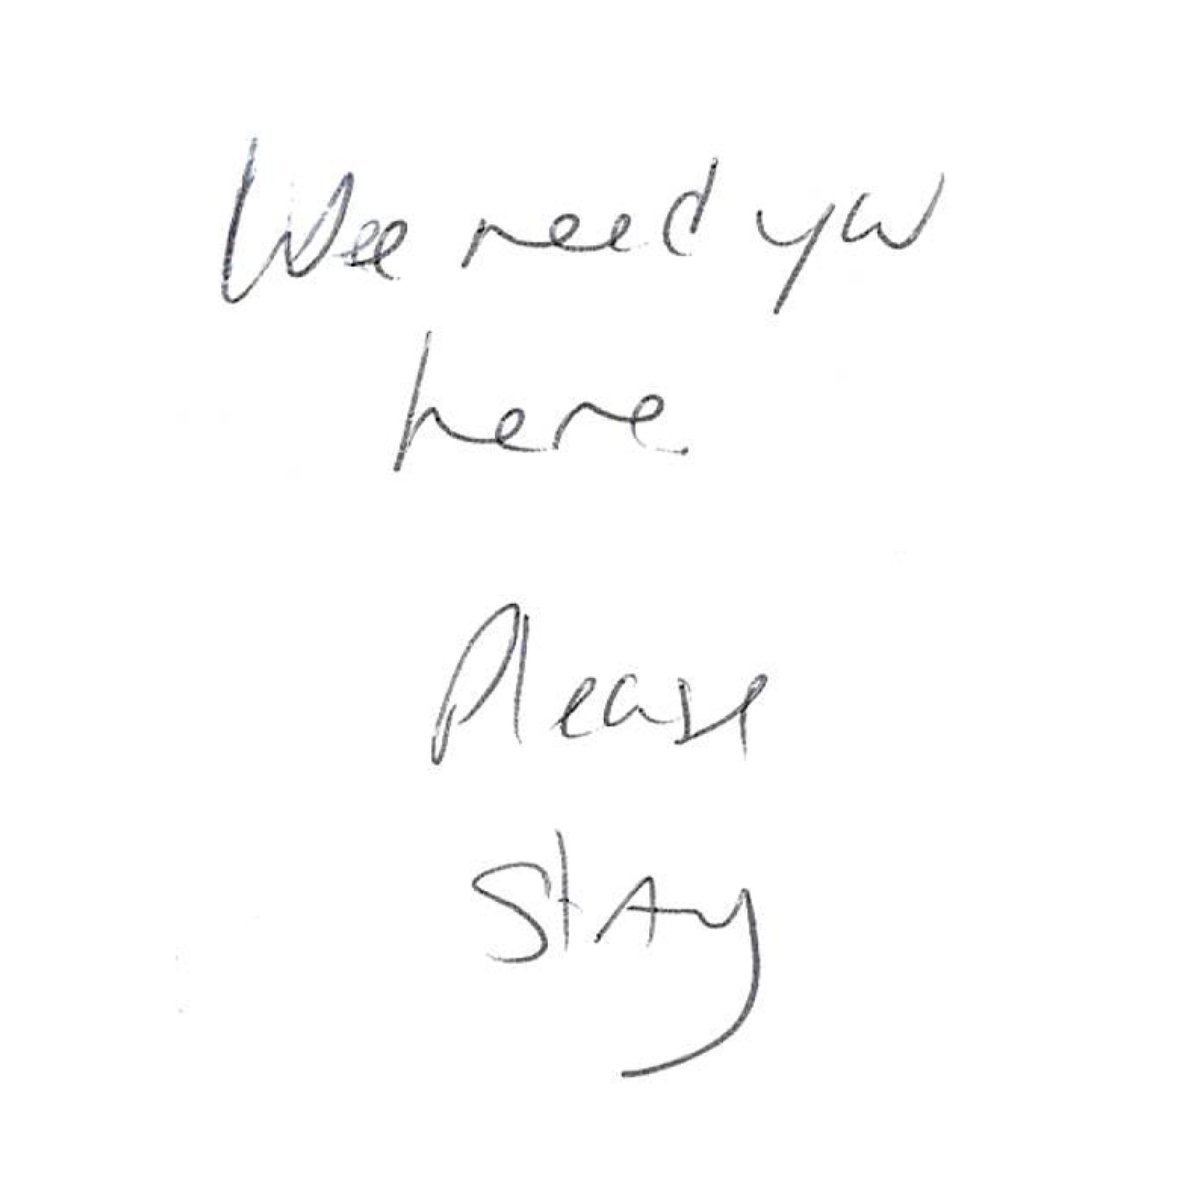 Wee need you
here
Please
Stay